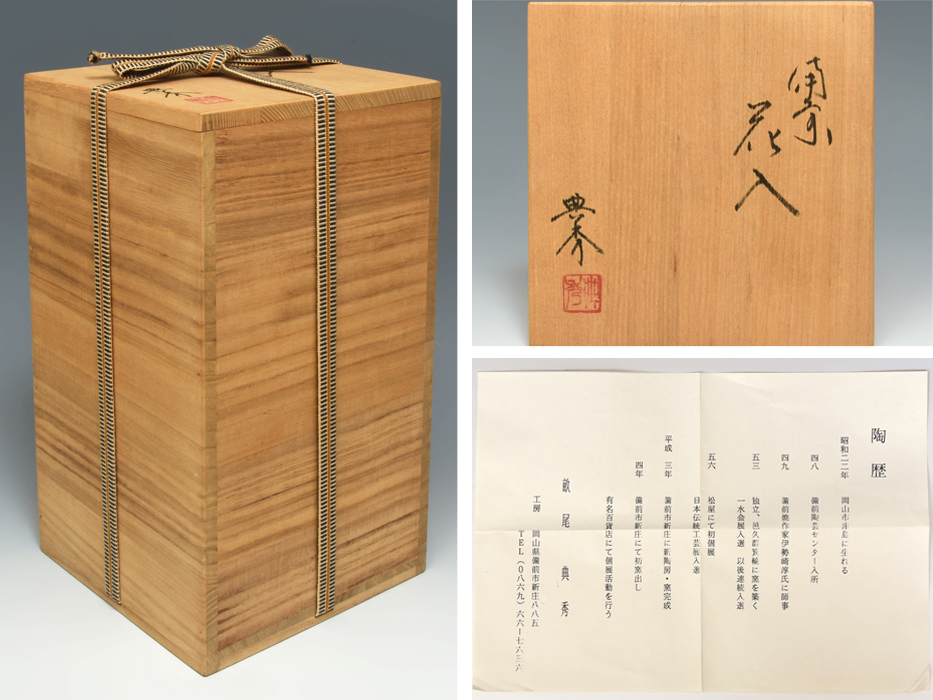 備前
花入
典秀
陶歴
昭和二二年 岡山市浦島に生れる
四八 備前陶芸センター入所
四九 備前焼作家伊勢崎淳氏に師事
五三 独立、邑久郡箕輪に窯を築く
一水会展入選 以後連続入選
五六 松屋にて初個展
日本伝統工芸展入選
平成三年 備前市新庄に新陶房・窯完成
四年 備前市新庄にて初窯出し
有名百貨店にて個展活動を行う
畝尾典秀
工房 岡山県備前市新庄八八五
TEL(〇八六九)六六ー七六三六